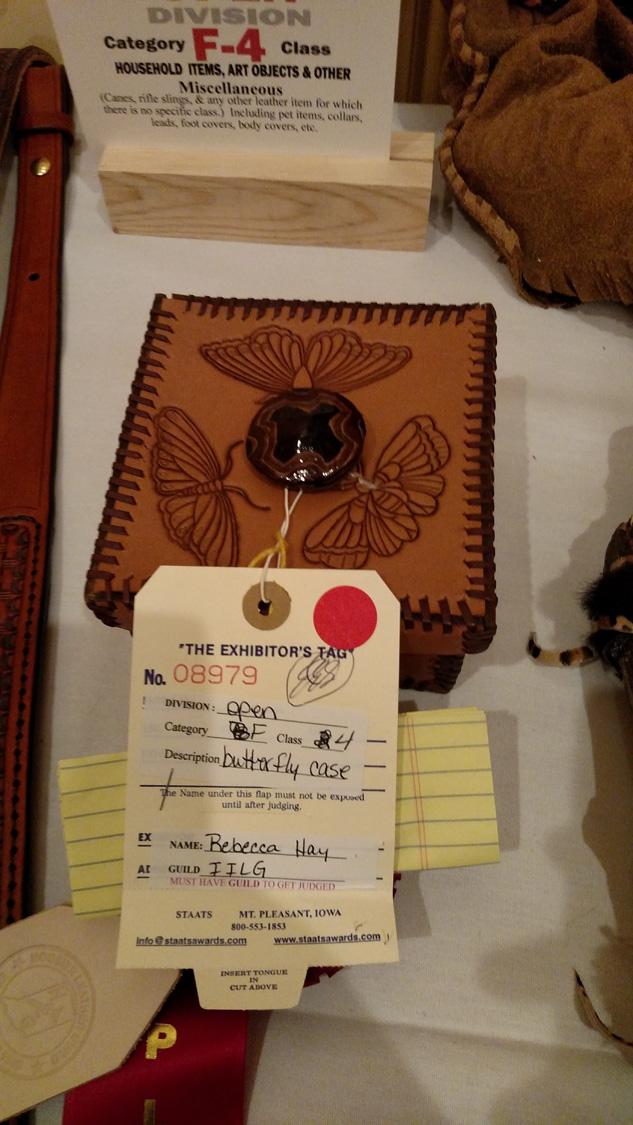 DIVISION
Category F-4 Class
HOUSEHOLD ITEMS, ART OBJECTS & OTHER
Miscellaneous
(Canes, rifle slings, & any other leather item for which
there is no specific class.) Including pet items, collars,
leads, foot covers, body covers, etc.
"THE EXHIBITOR'S TAG"
No. 08979
DIVISION: open
Category F Class 4
Description butterfly case
The Name under this flap must not be exposed
until after judging.
EX
NAME: Rebecca Hay
GUILD IILG
MUST HAVE GUILD TO GET JUDGED
STAATS MT. PLEASANT, IOWA
800-553-1853
Info@staatsawards.com www.staatsawards.com
INSERT TONGUE
IN
CUT ABOVE
P